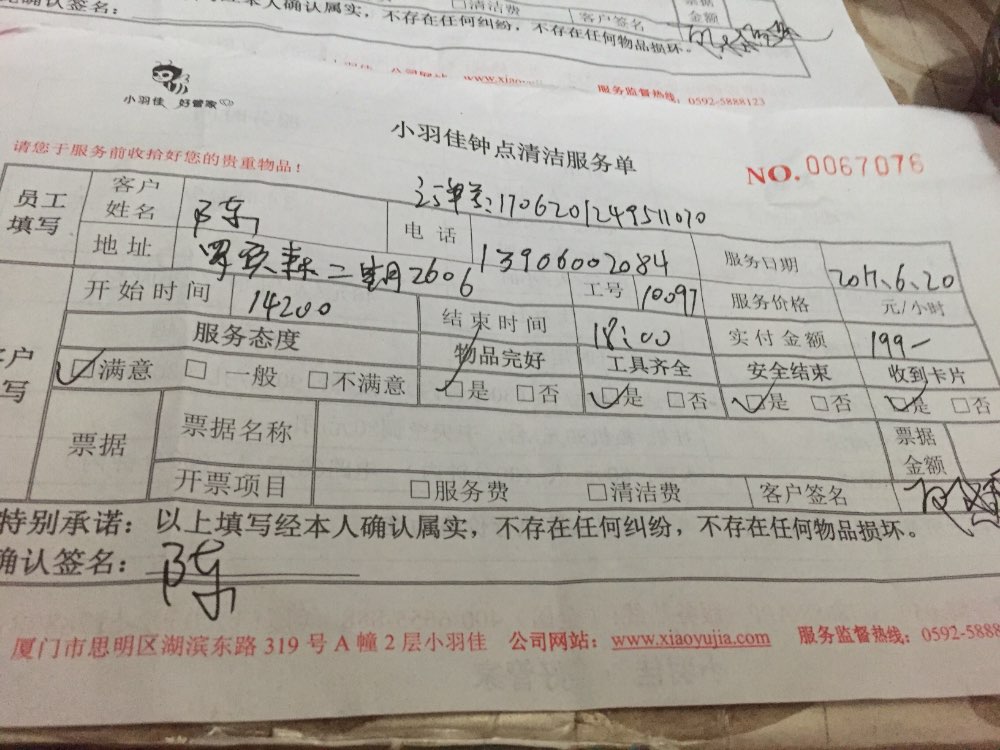 确认签名：
以上填写经本人确认属实，不存在任何纠纷，不存在任何物品损坏。
□清洁费 客户签名 票据金额
www.xiaoyujia 服务监督热线：0592-5888123
小羽佳 好管家
小羽佳钟点清洁服务单
请您于服务前收拾好您的贵重物品！
NO.0067076
订单号：1706201249511070
员工填写 客户姓名 陈 电话 13906002084 服务日期 2017.6.20
地址 二期2606 工号 10097 服务价格 元/小时
开始时间 14:00 结束时间 18:00 实付金额 199-
服务态度 物品完好 工具齐全 安全结束 收到卡片
☑满意 □一般 □不满意 ☑是 □否 ☑是 □否 ☑是 □否 ☑是 □否
票据 票据名称 票据金额
开票项目 □服务费 □清洁费 客户签名
特别承诺：以上填写经本人确认属实，不存在任何纠纷，不存在任何物品损坏。
确认签名：陈
厦门市思明区湖滨东路319号A幢2层小羽佳 公司网站：www.xiaoyujia.com 服务监督热线：0592-5888